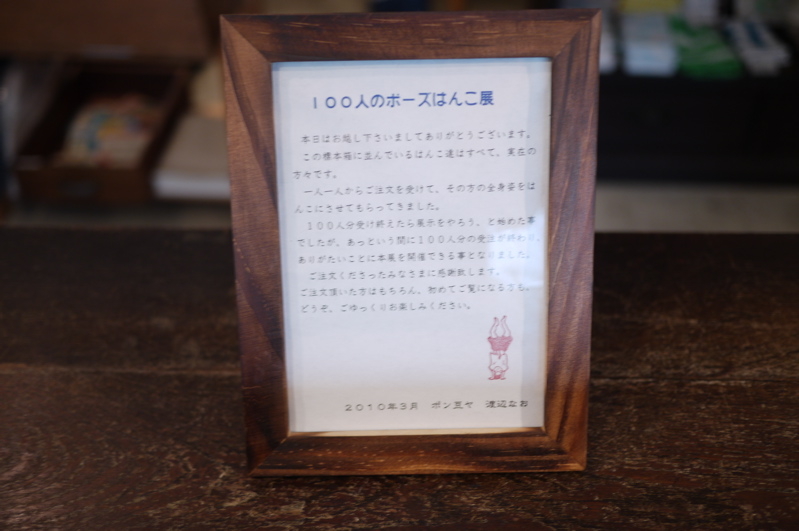 100人のポーズはんこ展
本日はお越し下さいましてありがとうございます。
この標本箱に並んでいるはんこ達はすべて、実在の
方々です。
一人一人からご注文を受けて、その方の全身姿をは
んこにさせてもらってきました。
100人分受け終えたら展示をやろう、と始めた事
でしたが、あっという間に100人分の受注が終わり、
ありがたいことに本展を開催できる事となりました。
ご注文くださったみなさまに感謝致します。
ご注文頂いた方はもちろん、初めてご覧になる方も、
どうぞ、ごゆっくりお楽しみください。
2010年3月 ポン豆ヤ 渡辺なお